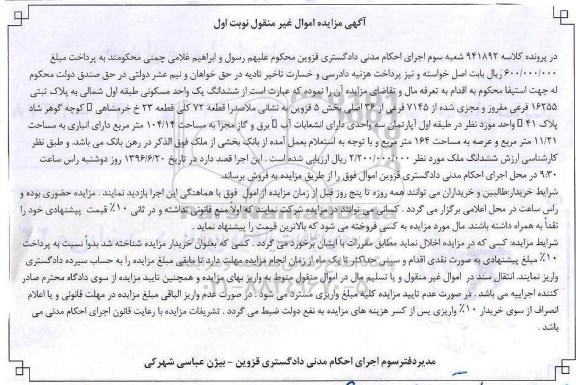 آگهی مزایده اموال غیر منقول نوبت اول
در پرونده کلاسه ۹۴۱۸۹۲ شعبه سوم اجرای احکام مدنی دادگستری قزوین محکوم علیهم رسول و ابراهیم غلامی چمنی محکومند به پرداخت مبلغ
۶۰۰/۰۰۰/۰۰۰ ریال بابت اصل خواسته و نیز پرداخت هزینه دادرسی و خسارت تاخیر تادیه در حق خواهان و نیم عشر دولتی در حق صندوق دولت محکوم
له جهت استیفا محکوم به اقدام به تعرفه مال و تقاضای مزایده آن را نموده که عبارت است از ششدانگ یک واحد مسکونی طبقه اول شمالی به پلاک ثبتی
۱۶۲۵۵ فرعی مفروز و مجزی شده از ۷۱۴۵ فرعی از ۳۶ اصلی بخش ۵ قزوین به نشانی ملاصدرا قطعه ۷۲ کلی قطعه ۲۳ خ خرمشاهی کوچه گوهر شاد
پلاک ۴۱ واحد مورد نظر در طبقه اول آپارتمان سه واحدی دارای انشعابات آب برق و گاز مجزا به مساحت ۱۰۴/۱۴ متر مربع دارای انباری به مساحت
۱۱/۲۱ متر مربع و عرصه به مساحت ۱۶۴ متر مربع و با توجه به استعلام بعمل آمده از بانک بخشی از ملک فوق الذکر در رهن بانک می باشد. و طبق نظر
کارشناسی ارزش ششدانگ ملک مورد نظر ۲/۲۰۰/۰۰۰/۰۰۰ ریال ارزیابی شده است . این اجرا قصد دارد در تاریخ ۱۳۹۶/۶/۲۰ روز دوشنبه راس ساعت
۹:۳۰ در محل اجرای احکام مدنی دادگستری قزوین اموال فوق را از طریق مزایده به فروش برساند.
شرایط خریدار:طالبین و خریداران می توانند همه روزه تا پنج روز قبل از زمان مزایده از اموال فوق با هماهنگی این اجرا بازدید نمایند . مزایده حضوری بوده و
راس ساعت در محل اعلامی برگزار می گردد . کسانی می توانند در مزایده شرکت نمایند که اولا منع قانونی نداشته و در ثانی ۱۰٪ قیمت پیشنهادی خود را
نقداً به همراه داشته باشند. مال مورد مزایده به کسی فروخته می شود که بالاترین قیمت را پیشنهاد نماید .
شرایط مزایده: کسی که در مزایده اخلال نماید مطابق مقررات با ایشان برخورد می گردد . کسی که بعنوان خریدار مزایده شناخته شد بدواً نسبت به پرداخت
۱۰٪ مبلغ پیشنهادی به صورت نقدی اقدام و سپس حداکثر تا یک ماه از زمان انجام مزایده مهلت دارد تا مابقی مبلغ مزایده را به حساب سپرده دادگستری
واریز نمایند. انتقال سند در اموال غیر منقول و یا تسلیم مال در اموال منقول منوط به واریز بهای مزایده و همچنین تایید مزایده از سوی دادگاه محترم صادر
کننده اجراییه می باشد . در صورت عدم تایید مزایده کلیه مبلغ واریزی مسترد می شود . در صورت عدم واریز الباقی مبلغ مزایده در مهلت قانونی و یا اعلام
انصراف از سوی خریدار ۱۰٪ واریزی پس از کسر هزینه های مزایده به نفع دولت ضبط می گردد . تشریفات مزایده با رعایت قانون اجرای احکام مدنی می
باشد .
مدیردفترسوم اجرای احکام مدنی دادگستری قزوین - بیژن عباسی شهرکی